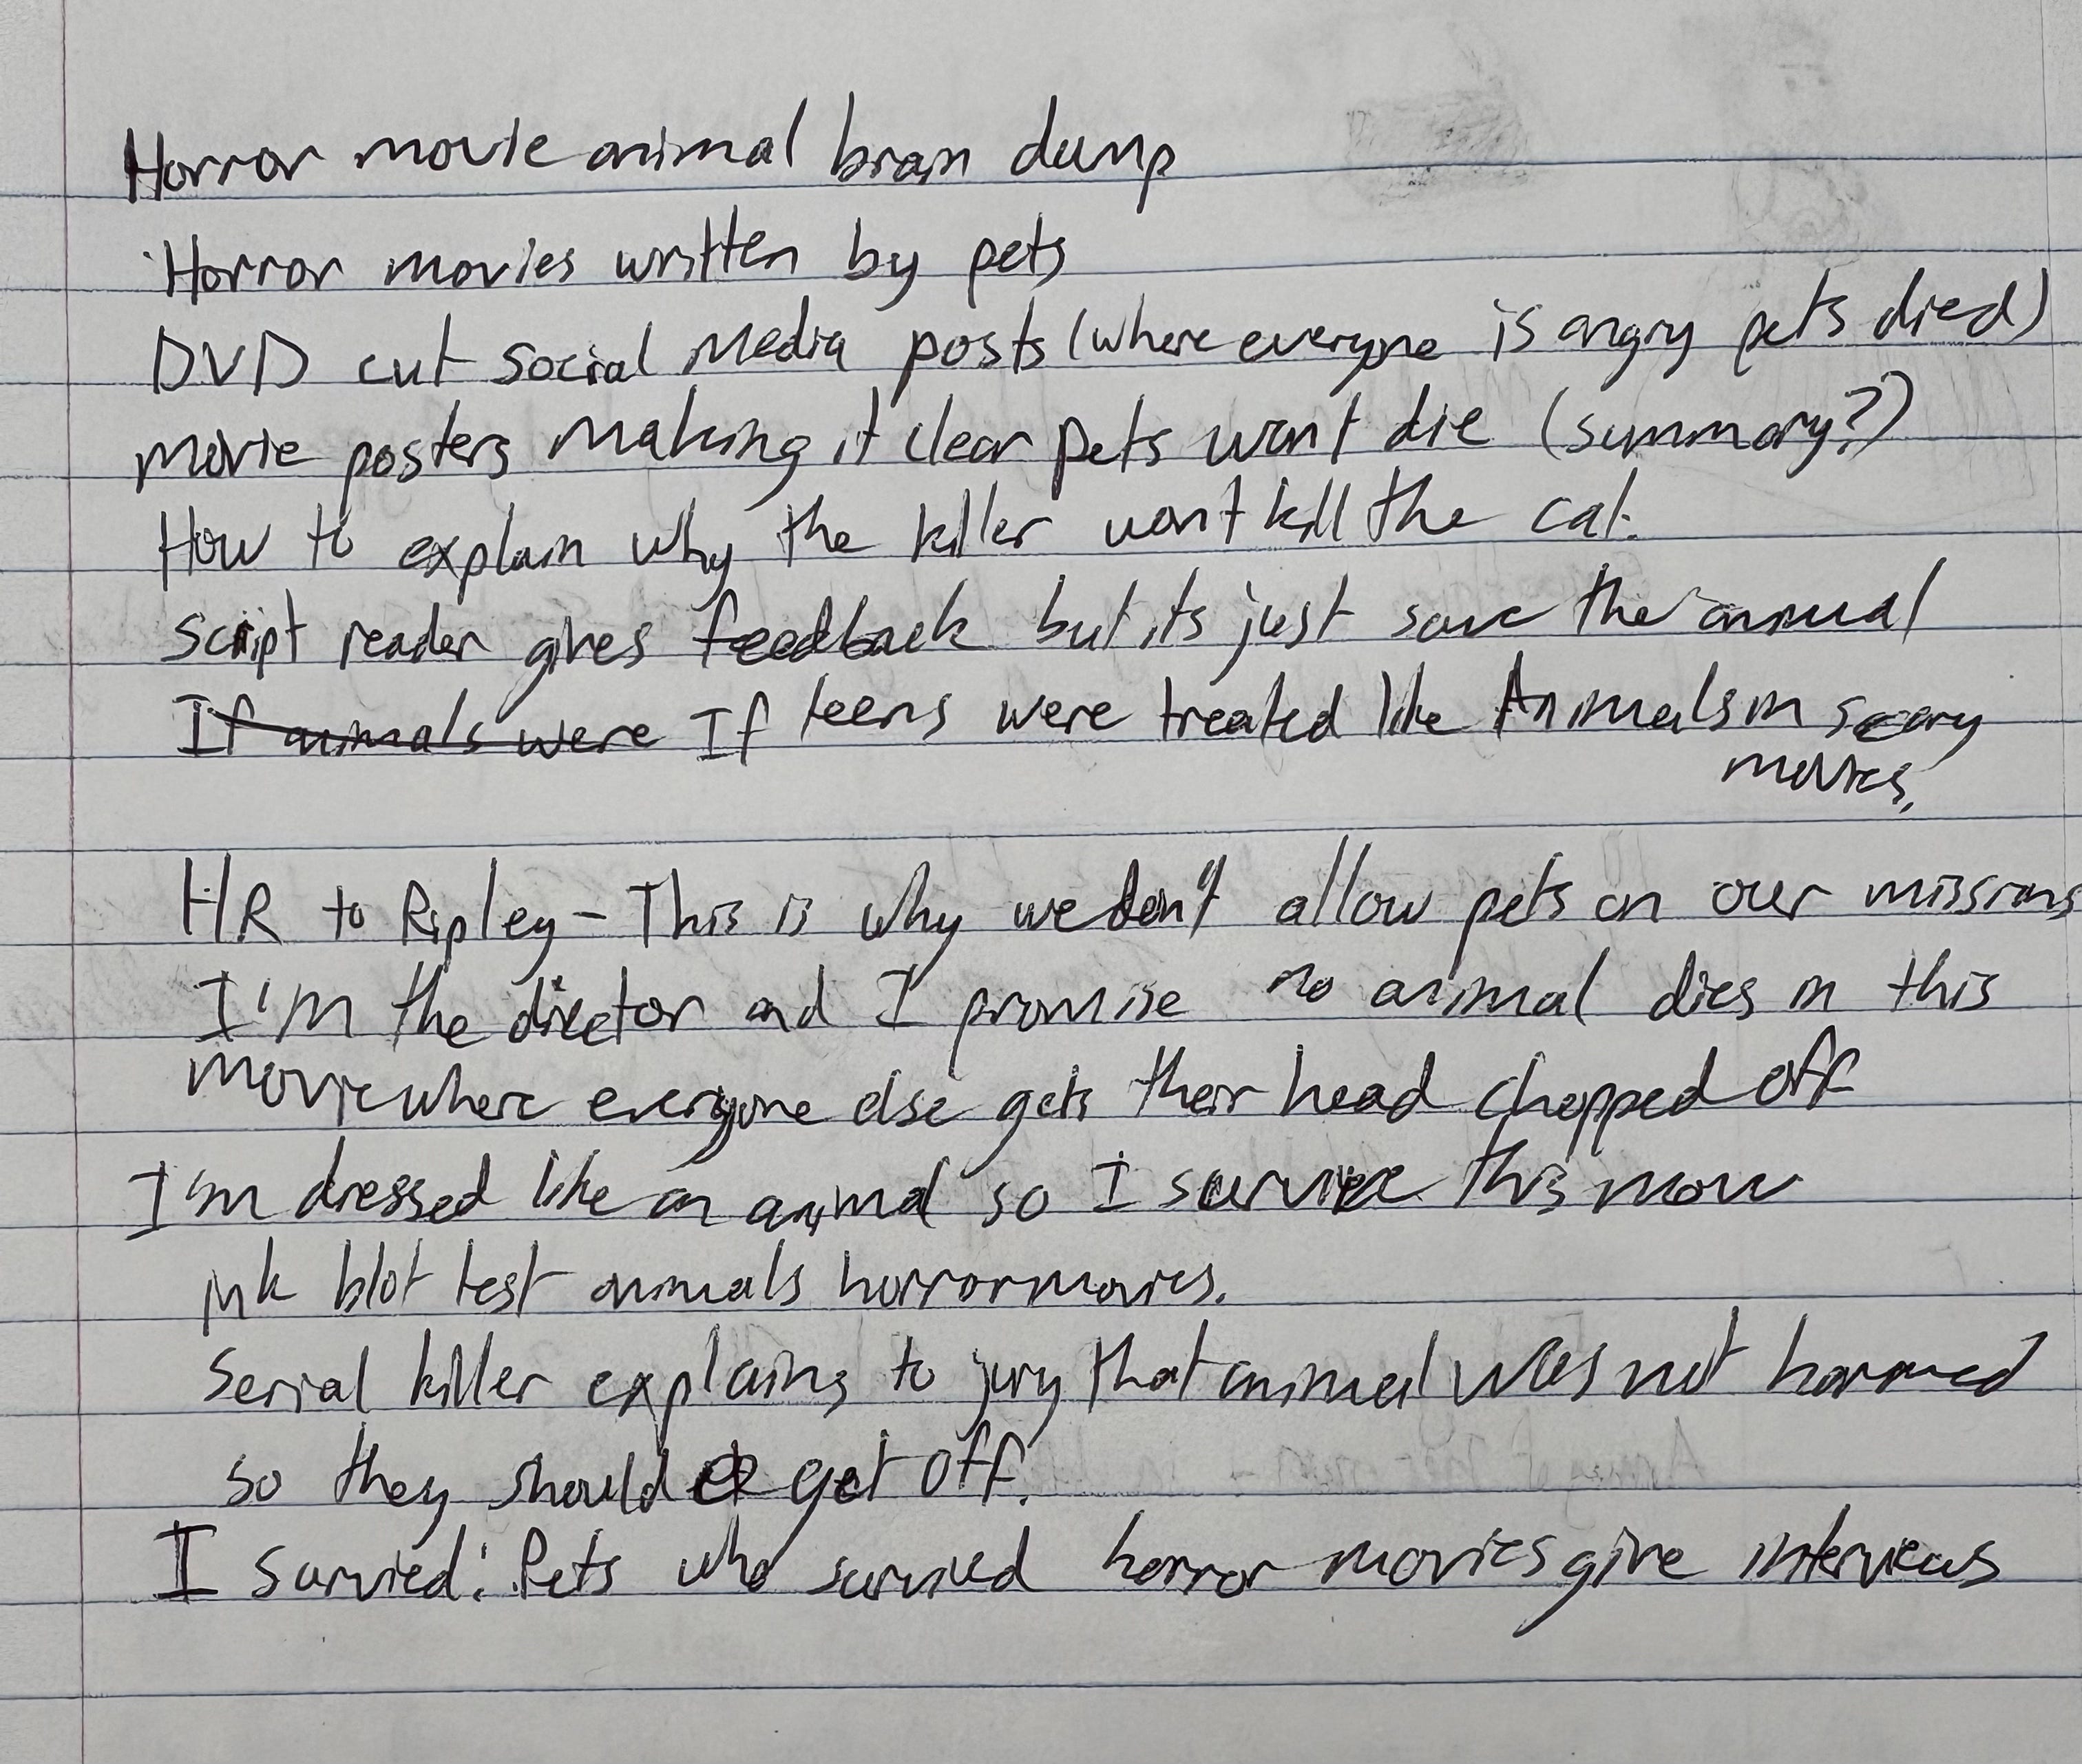 Horror movie animal brain dump
Horror movies written by pets
DVD cut social media posts (where everyone is angry pets died)
movie posters making it clear pets won't die (summary?)
How to explain why the killer won't kill the cat.
Script reader gives feedback but its just save the animal
If animals were If teens were treated like Animals in scary
movies.
HR to Ripley - This is why we don't allow pets on our missions
I'm the director and I promise no animal dies in this
movie where everyone else gets their head chopped off
I'm dressed like an animal so I survive this now
ink blot test animals horror movies.
Serial killer explains to jury that animal was not harmed
so they should get off.
I survied: Pets who survied horror movies give interviews